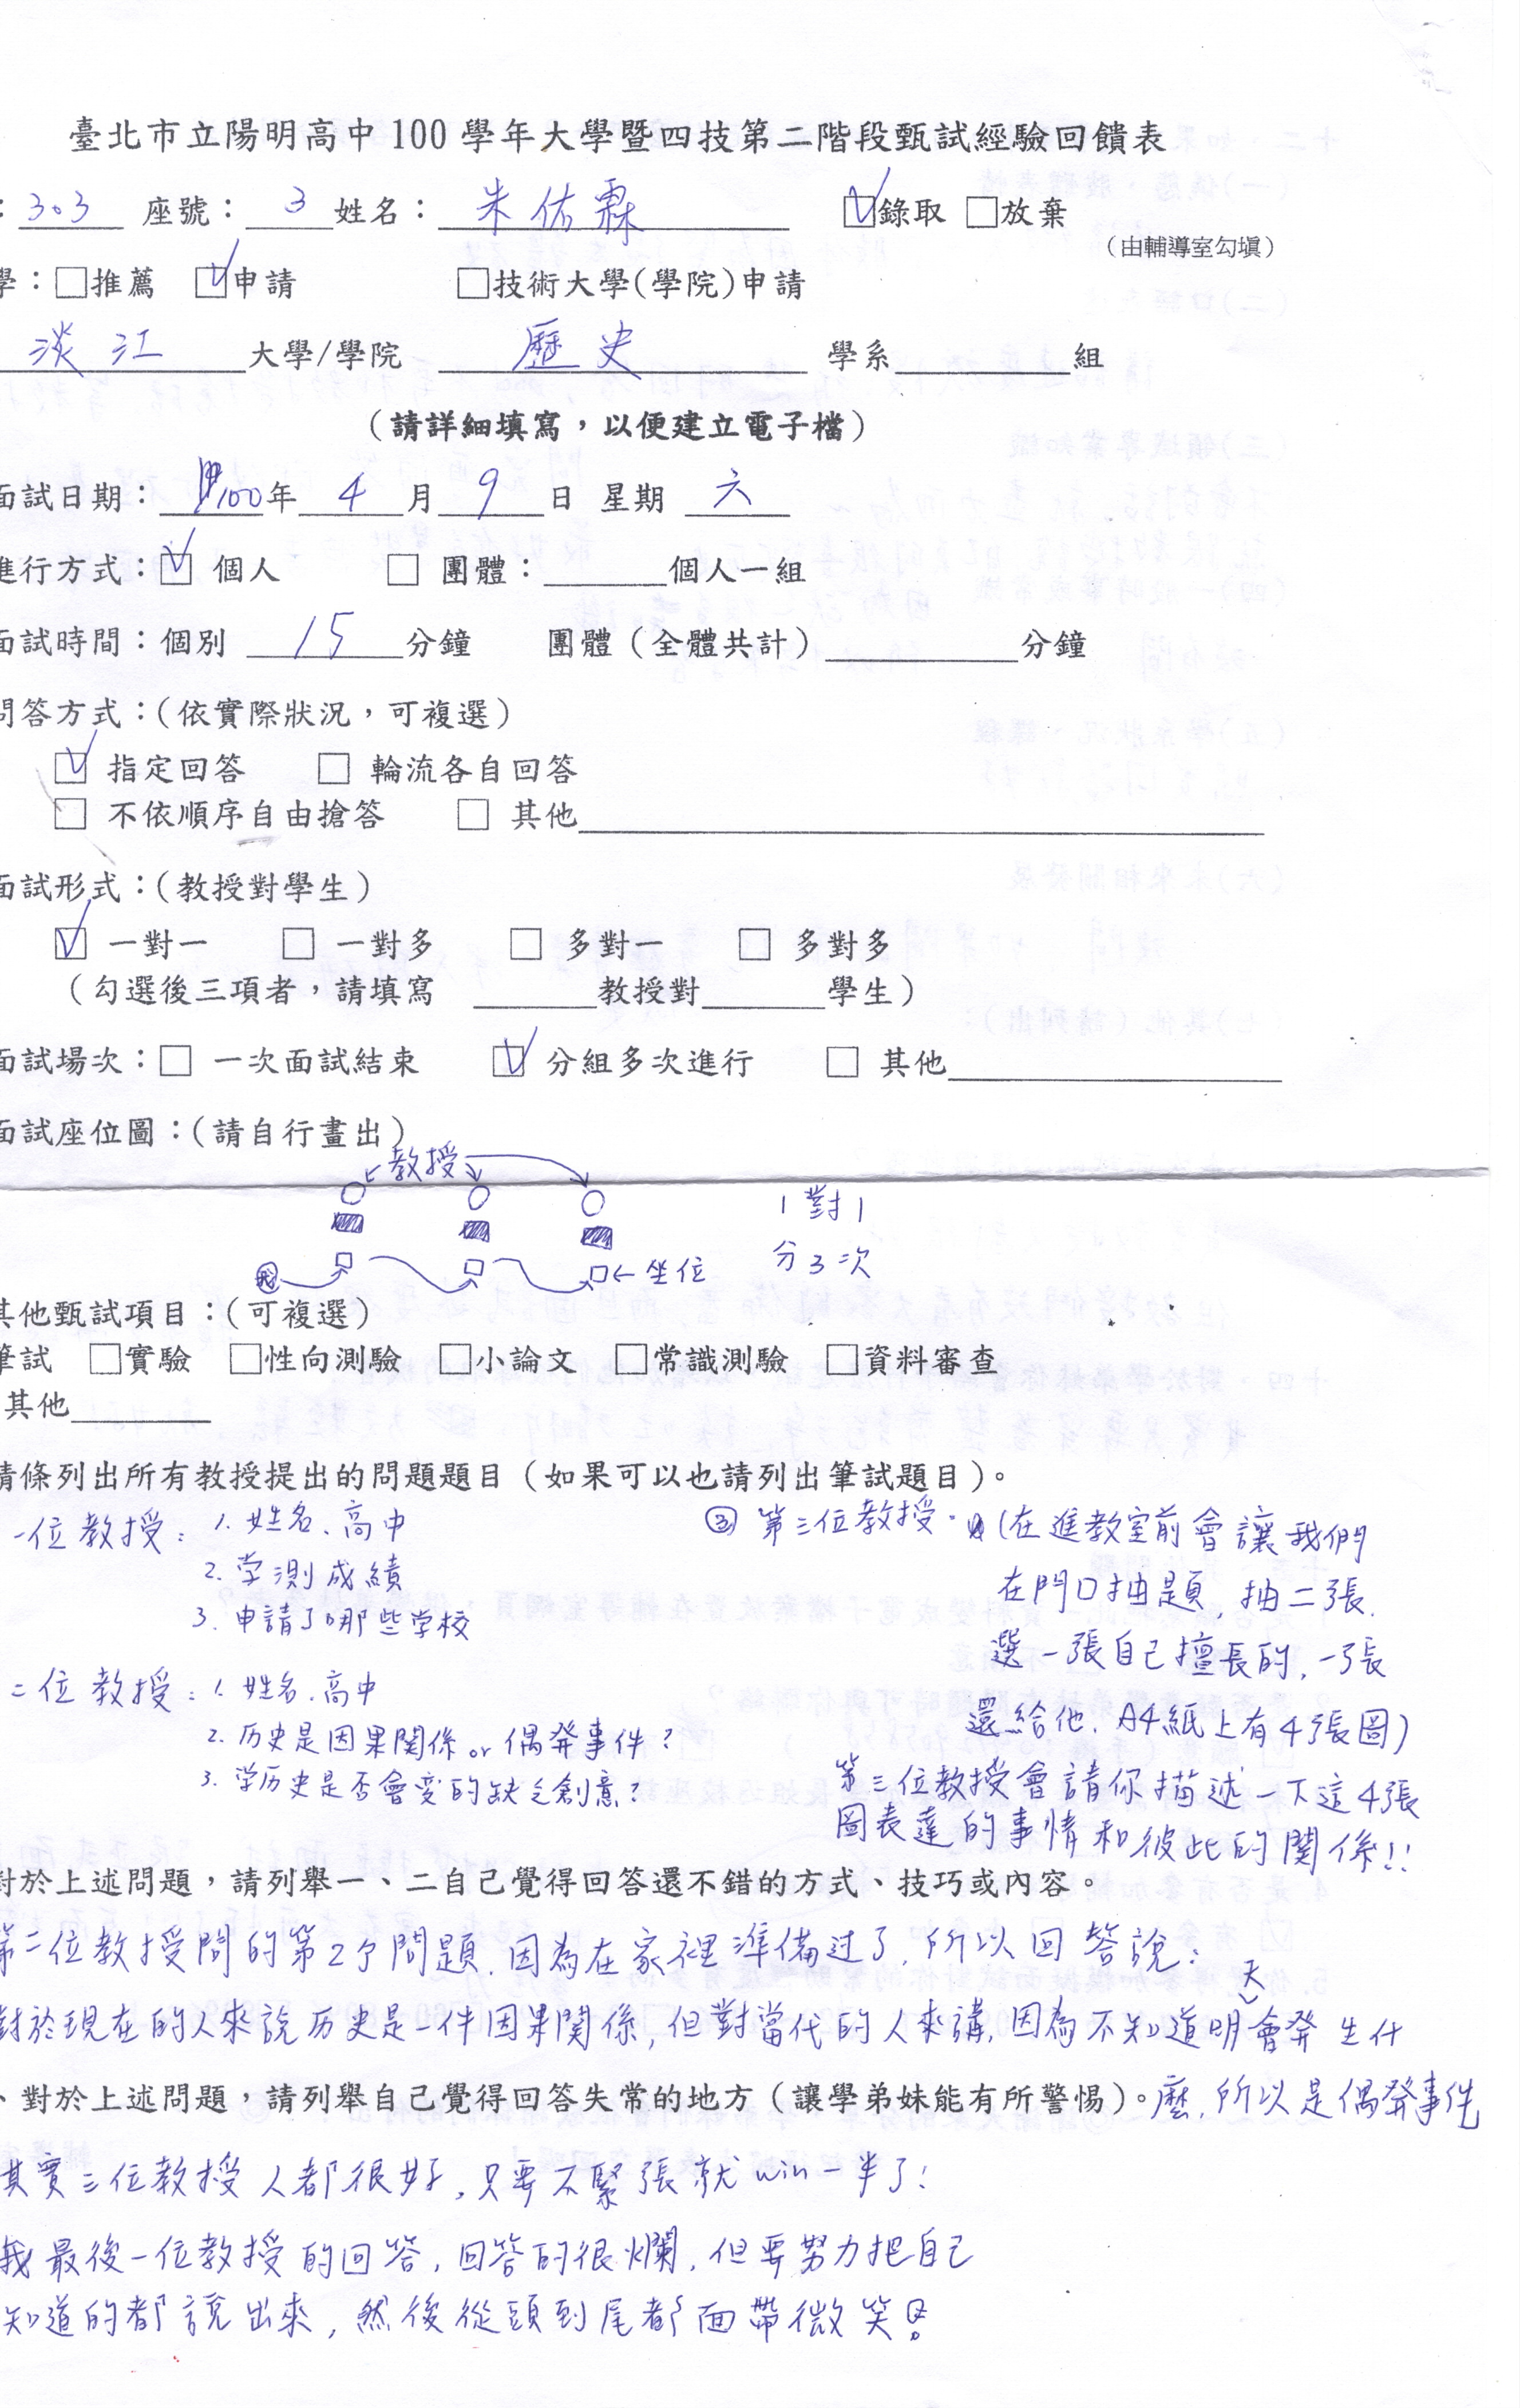 臺北市立陽明高中 100 學年大學暨四技第二階段甄試經驗回饋表
：303 座號：3 姓名：朱佑霖 ☑錄取 □放棄
（由輔導室勾填）
學：□推薦 ☑申請 □技術大學(學院)申請
淡江 大學/學院 歷史 學系 組
（請詳細填寫，以便建立電子檔）
面試日期：100年 4 月 9 日 星期 六
進行方式：☑ 個人 □ 團體： 個人一組
面試時間：個別 15 分鐘 團體（全體共計） 分鐘
問答方式：(依實際狀況，可複選)
☑ 指定回答 □ 輪流各自回答
□ 不依順序自由搶答 □ 其他
面試形式：(教授對學生)
☑ 一對一 □ 一對多 □ 多對一 □ 多對多
（勾選後三項者，請填寫 教授對 學生）
面試場次：□ 一次面試結束 ☑ 分組多次進行 □ 其他
面試座位圖：(請自行畫出)
教授
1對1
分3次
我
←坐位
其他甄試項目：(可複選)
筆試 □實驗 □性向測驗 □小論文 □常識測驗 □資料審查
其他
請條列出所有教授提出的問題題目（如果可以也請列出筆試題目）。
一位教授：1. 姓名、高中
2. 学測成績
3. 申請了哪些学校
二位教授：1. 姓名、高中
2. 历史是因果関係 or 偶発事件？
3. 学历史是否會变的缺乏創意？
③ 第三位教授：(在進教室前會讓我們
在門口抽題，抽二張.
選一張自己擅長的，一張
還給他. A4紙上有4張圖)
第三位教授會請你描述一下這4張
圖表達的事情和彼此的関係!!
對於上述問題，請列舉一、二自己覺得回答還不錯的方式、技巧或內容。
第二位教授問的第2个問題，因為在家裡準備过了，所以回答說：
對於現在的人來說历史是一件因果関係，但對當代的人來講，因為不知道明天會発生什
、對於上述問題，請列舉自己覺得回答失常的地方（讓學弟妹能有所警惕）。
麼，所以是偶発事件
其實三位教授人都很好，只要不緊張就win一半了！
我最後一位教授的回答，回答的很爛，但要努力把自己
知道的都說出來，然後從頭到尾都面帶微笑！